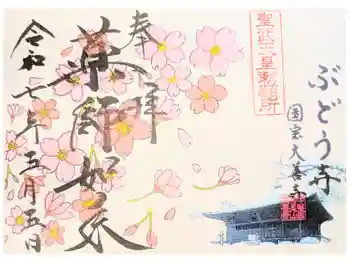 聖武天皇勅願所
ぶどう寺
国宝大善寺
奉拝
薬師如来
令和七年五月五日